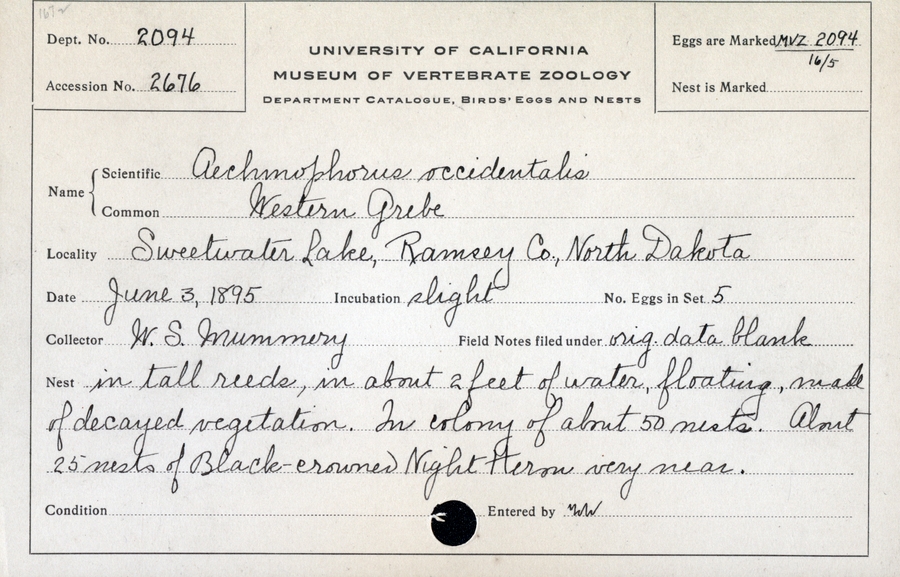 Dept. No. 2094
UNIVERSITY OF CALIFORNIA
MUSEUM OF VERTEBRATE ZOOLOGY
DEPARTMENT CATALOGUE, BIRDS' EGGS AND NESTS
Accession No. 2676
Eggs are Marked MVZ 2094
16/5
Nest is Marked
Name
Scientific Aechmophorus occidentalis
Common Western Grebe
Locality Sweetwater Lake, Ramsey Co., North Dakota
Date June 3, 1895 Incubation slight No. Eggs in Set 5
Collector W. S. Mummery Field Notes filed under orig. data blank
Nest in tall reeds, in about 2 feet of water, floating, made
of decayed vegetation. In colony of about 50 nests. About
25 nests of Black-crowned Night Heron very near.
Condition Entered by